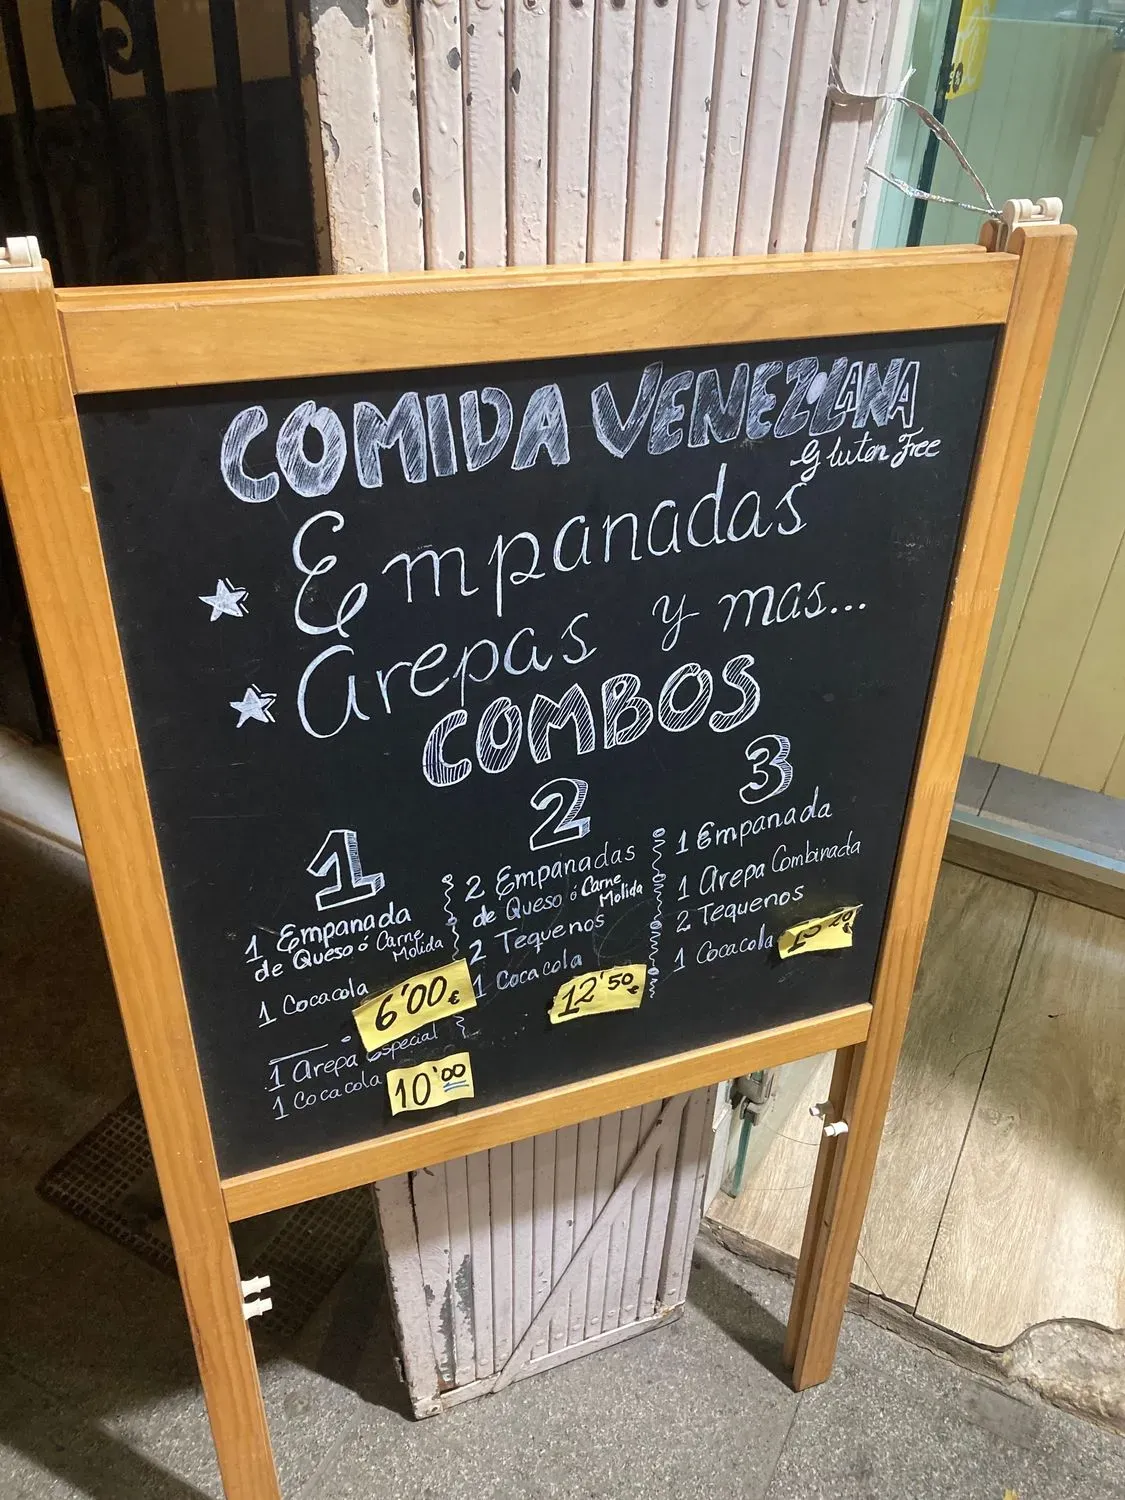 COMIDA VENEZOLANA
Gluten Free
Empanadas
Arepas y mas...
COMBOS
1
1 Empanada
de Queso ó Carne
Molida
1 Cocacola
6'00€
1 Arepa Especial
1 Cocacola
10'00
2
2 Empanadas
de Queso ó Carne
Molida
2 Tequenos
1 Cocacola
12'50€
3
1 Empanada
1 Arepa Combinada
2 Tequenos
1 Cocacola